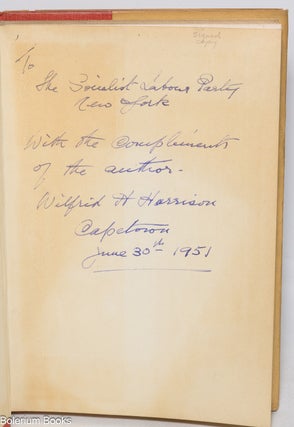 Signed
copy
To
The Socialist Labour Party
New York
With the Compliments
of the author -
Wilfrid H Harrison
Capetown
June 30th 1951
Bolerium Books